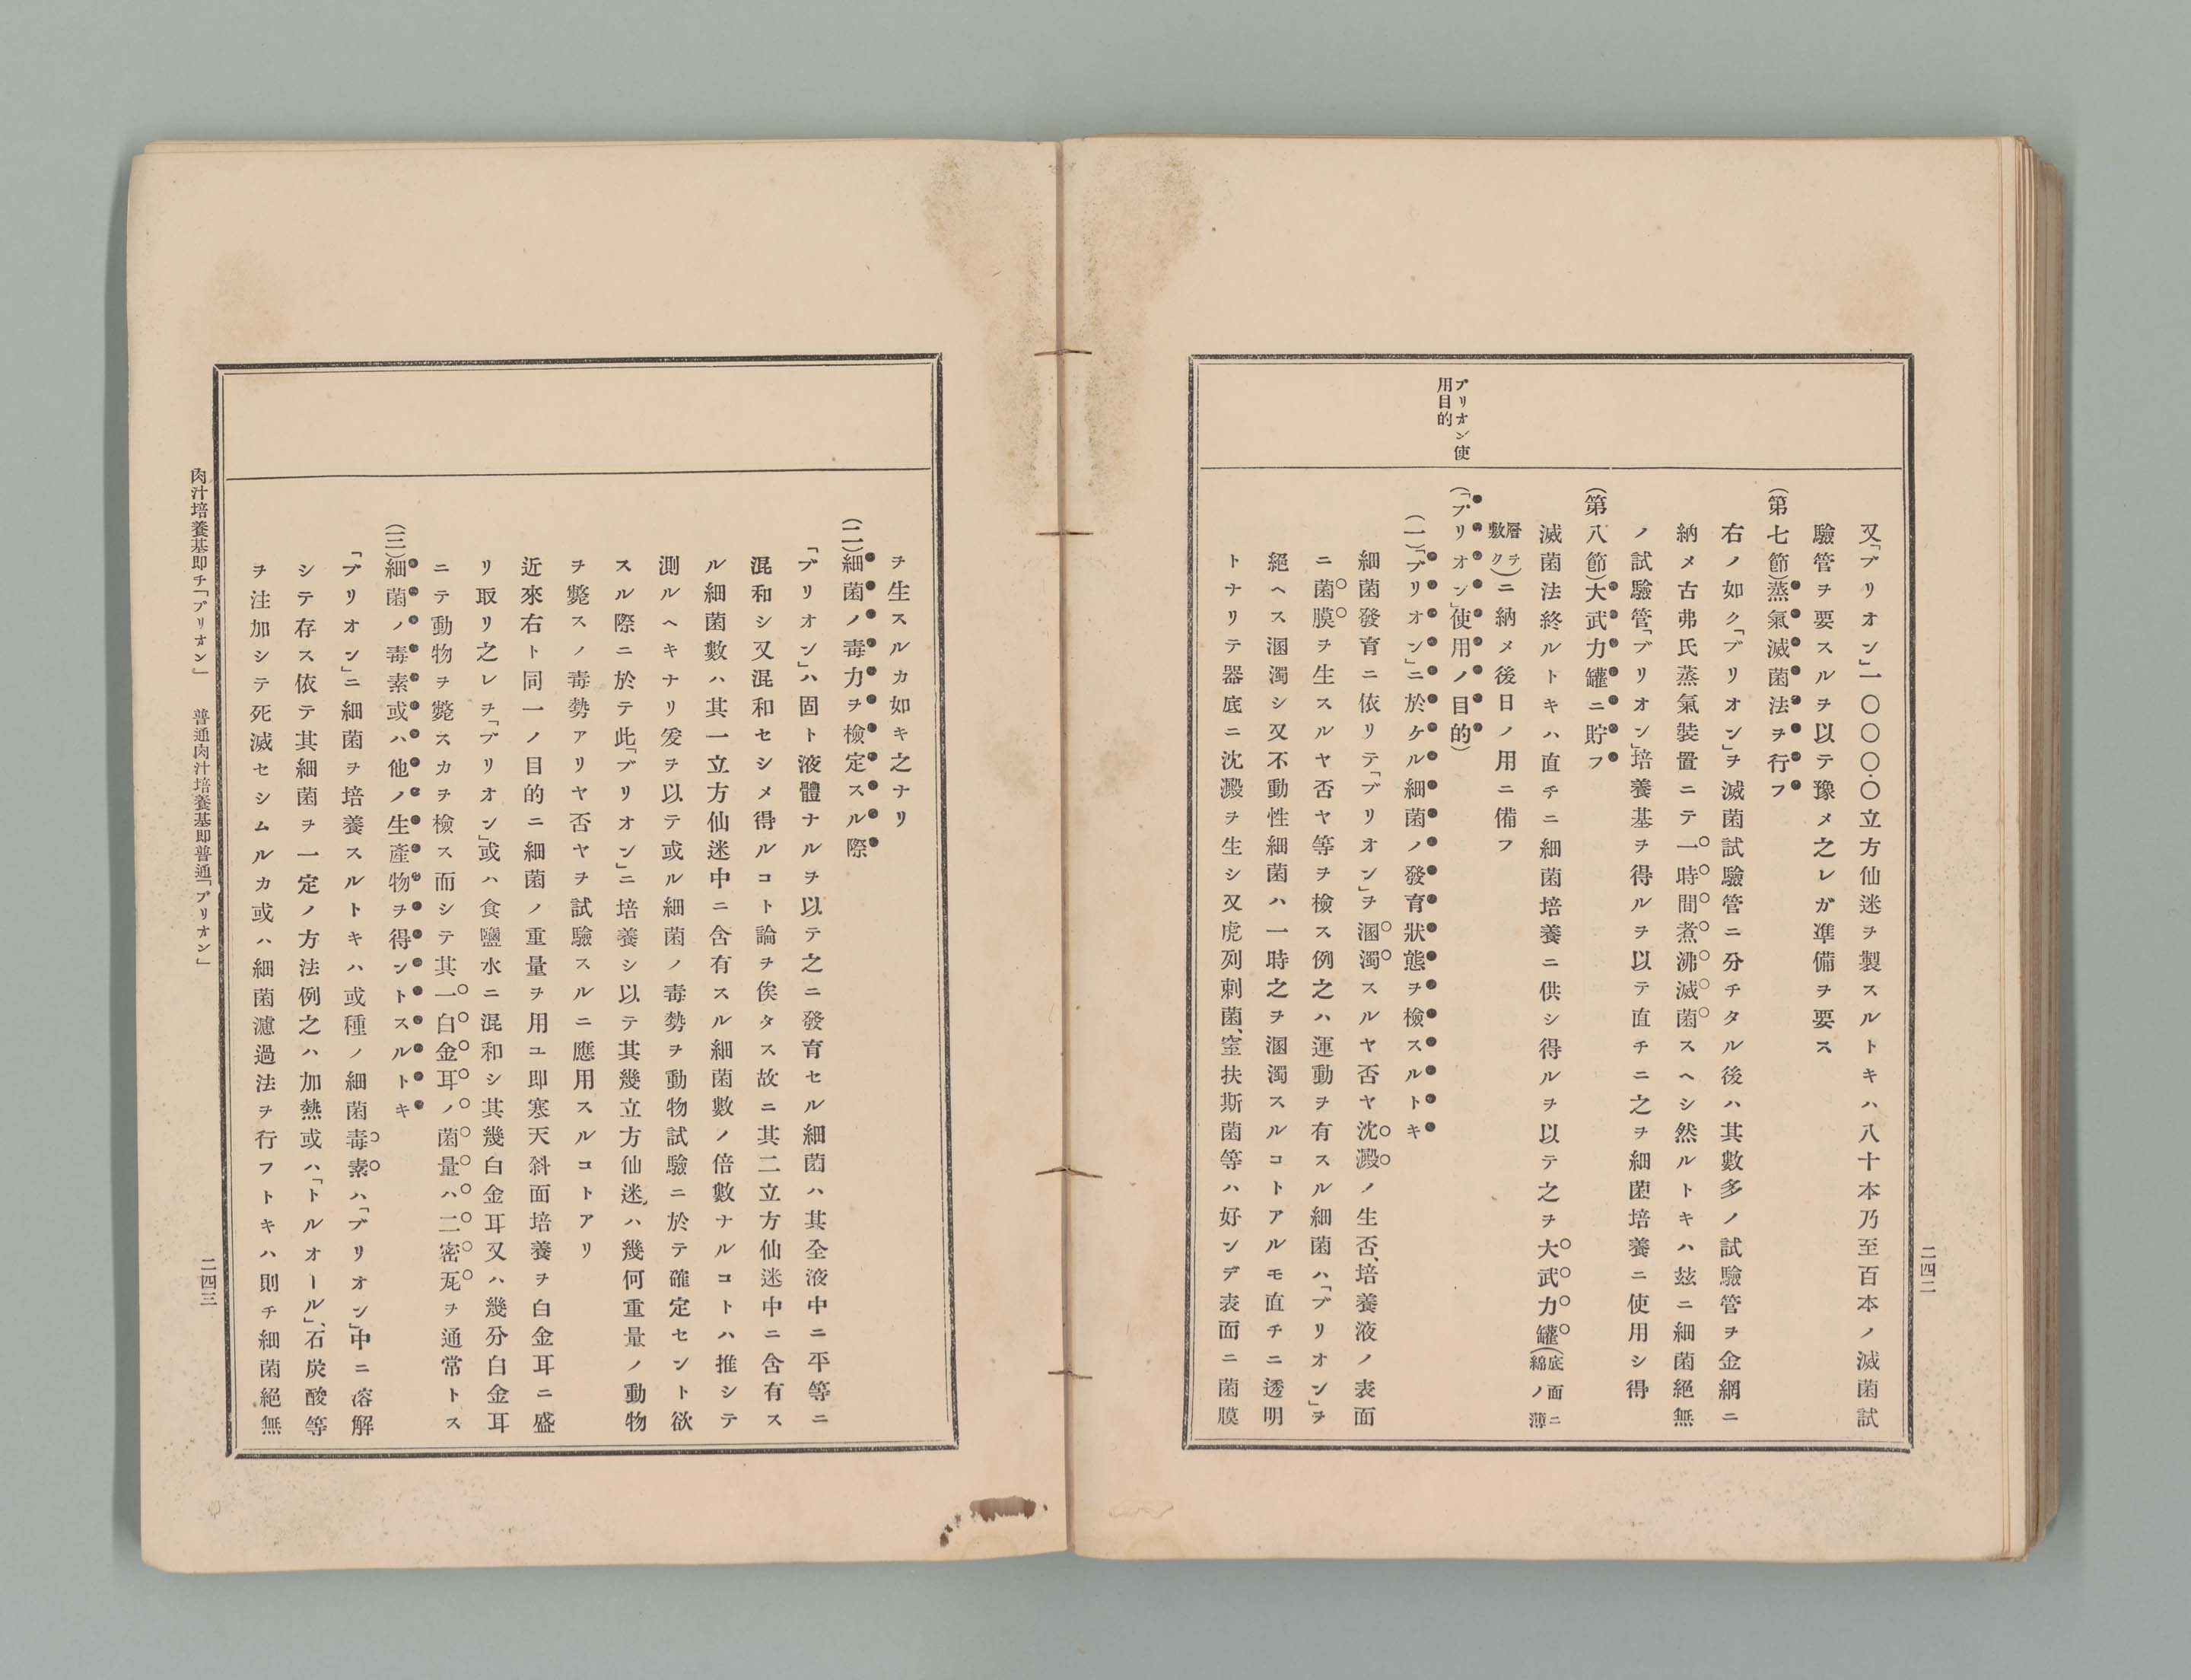 二四二
ブリオン使
用目的
又「ブリオン」一〇〇〇.〇立方仙迷ヲ製スルトキハ八十本乃至百本ノ滅菌試
驗管ヲ要スルヲ以テ豫メ之レガ準備ヲ要ス
(第七節)蒸氣滅菌法ヲ行フ
右ノ如ク「ブリオン」ヲ滅菌試驗管ニ分チタル後ハ其數多ノ試驗管ヲ金網ニ
納メ古弗氏蒸氣裝置ニテ一時間煮沸滅菌スヘシ然ルトキハ玆ニ細菌絕無
ノ試驗管「ブリオン」培養基ヲ得ルヲ以テ直チニ之ヲ細菌培養ニ使用シ得
(第八節)大武力罐ニ貯フ
滅菌法終ルトキハ直チニ細菌培養ニ供シ得ルヲ以テ之ヲ大武力罐(底面ニ綿ノ薄
層ヲ敷ク)ニ納メ後日ノ用ニ備フ
(「ブリオン」使用ノ目的)
(一)「ブリオン」ニ於ケル細菌ノ發育狀態ヲ檢スルトキ
細菌發育ニ依リテ「ブリオン」ヲ溷濁スルヤ否ヤ沈澱ノ生否、培養液ノ表面
ニ菌膜ヲ生スルヤ否ヤ等ヲ檢ス例之ハ運動ヲ有スル細菌ハ「ブリオン」ヲ
絕ヘス溷濁シ又不動性細菌ハ一時之ヲ溷濁スルコトアルモ直チニ透明
トナリテ器底ニ沈澱ヲ生シ又虎列剌菌、窒扶斯菌等ハ好ンデ表面ニ菌膜
ヲ生スルカ如キ之ナリ
(二)細菌ノ毒力ヲ檢定スル際
「ブリオン」ハ固ト液體ナルヲ以テ之ニ發育セル細菌ハ其全液中ニ平等ニ
混和シ又混和セシメ得ルコト論ヲ俟タス故ニ其二立方仙迷中ニ含有ス
ル細菌數ハ其一立方仙迷中ニ含有スル細菌數ノ倍數ナルコトハ推シテ
測ルヘキナリ爰ヲ以テ或ル細菌ノ毒勢ヲ動物試驗ニ於テ確定セント欲
スル際ニ於テ此「ブリオン」ニ培養シ以テ其幾立方仙迷ハ幾何重量ノ動物
ヲ斃スノ毒勢アリヤ否ヤヲ試驗スルニ應用スルコトアリ
近來右ト同一ノ目的ニ細菌ノ重量ヲ用ユ即寒天斜面培養ヲ白金耳ニ盛
リ取リ之レヲ「ブリオン」或ハ食鹽水ニ混和シ其幾白金耳又ハ幾分白金耳
ニテ動物ヲ斃スカヲ檢ス而シテ其一白金耳ノ菌量ハ二密瓦ヲ通常トス
(三)細菌ノ毒素或ハ他ノ生產物ヲ得ントスルトキ
「ブリオン」ニ細菌ヲ培養スルトキハ或種ノ細菌毒素ハ「ブリオン」中ニ溶解
シテ存ス依テ其細菌ヲ一定ノ方法例之ハ加熱或ハ「トルオール」、石炭酸等
ヲ注加シテ死滅セシムルカ或ハ細菌濾過法ヲ行フトキハ則チ細菌絕無
肉汁培養基即チ「ブリオン」　普通肉汁培養基即普通「ブリオン」
二四三